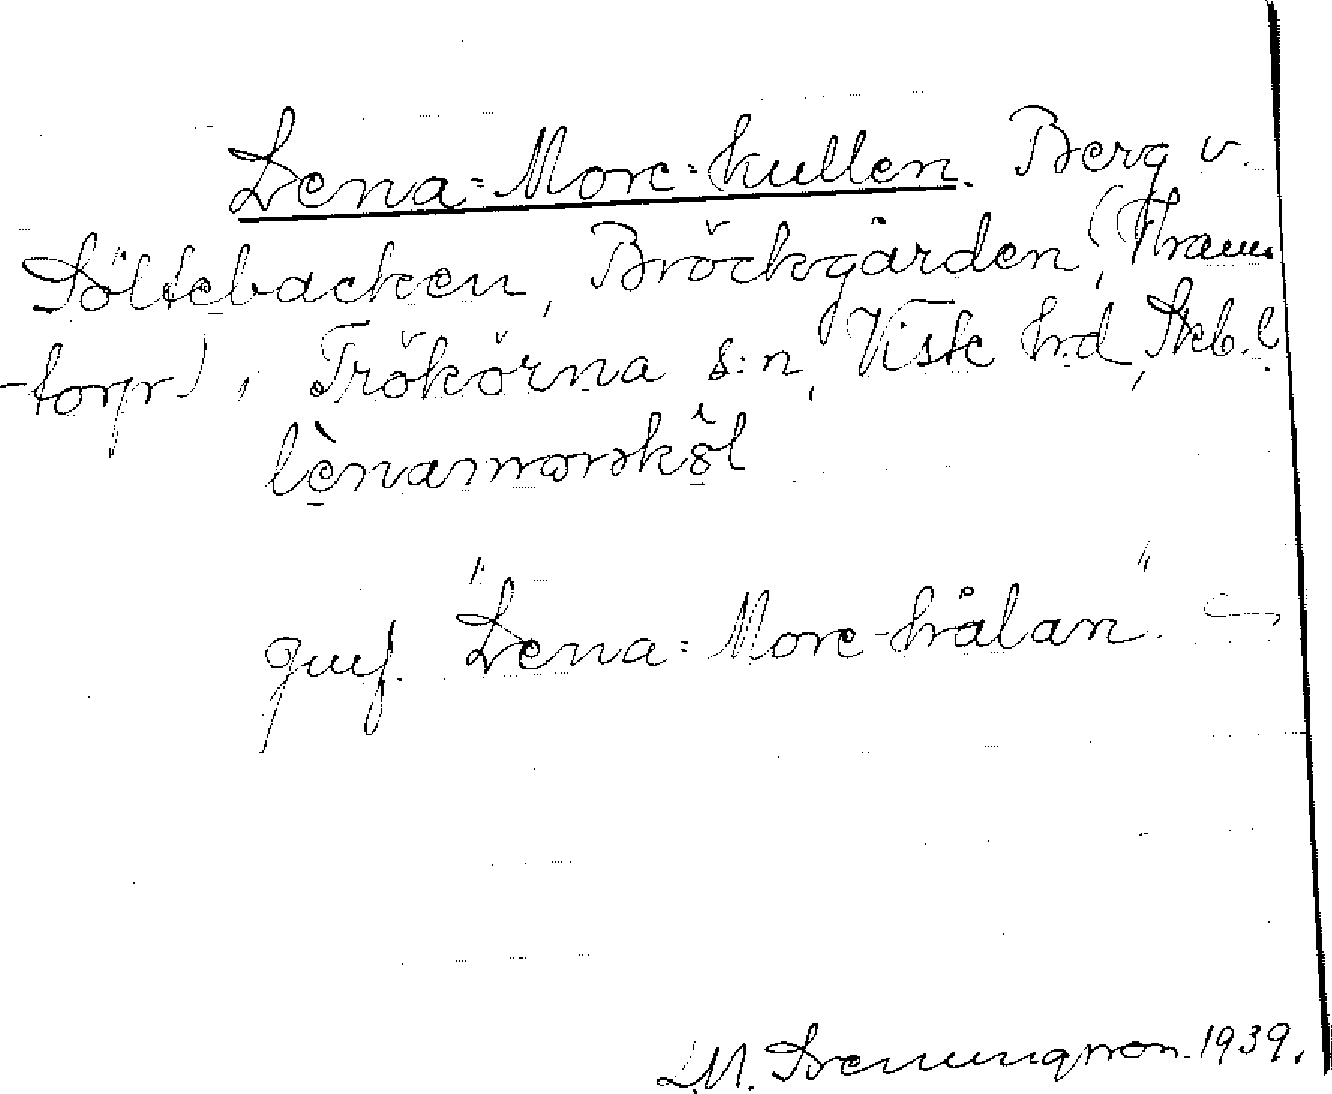 Lena-More-kullen. Berg v.
Söltebacken, Bröckgården, (Fram-
-torp), Trökörna s:n, Viste hd, Skb.l.
lènamorskøl
jmf. "Lena-More-hålan".
1939.